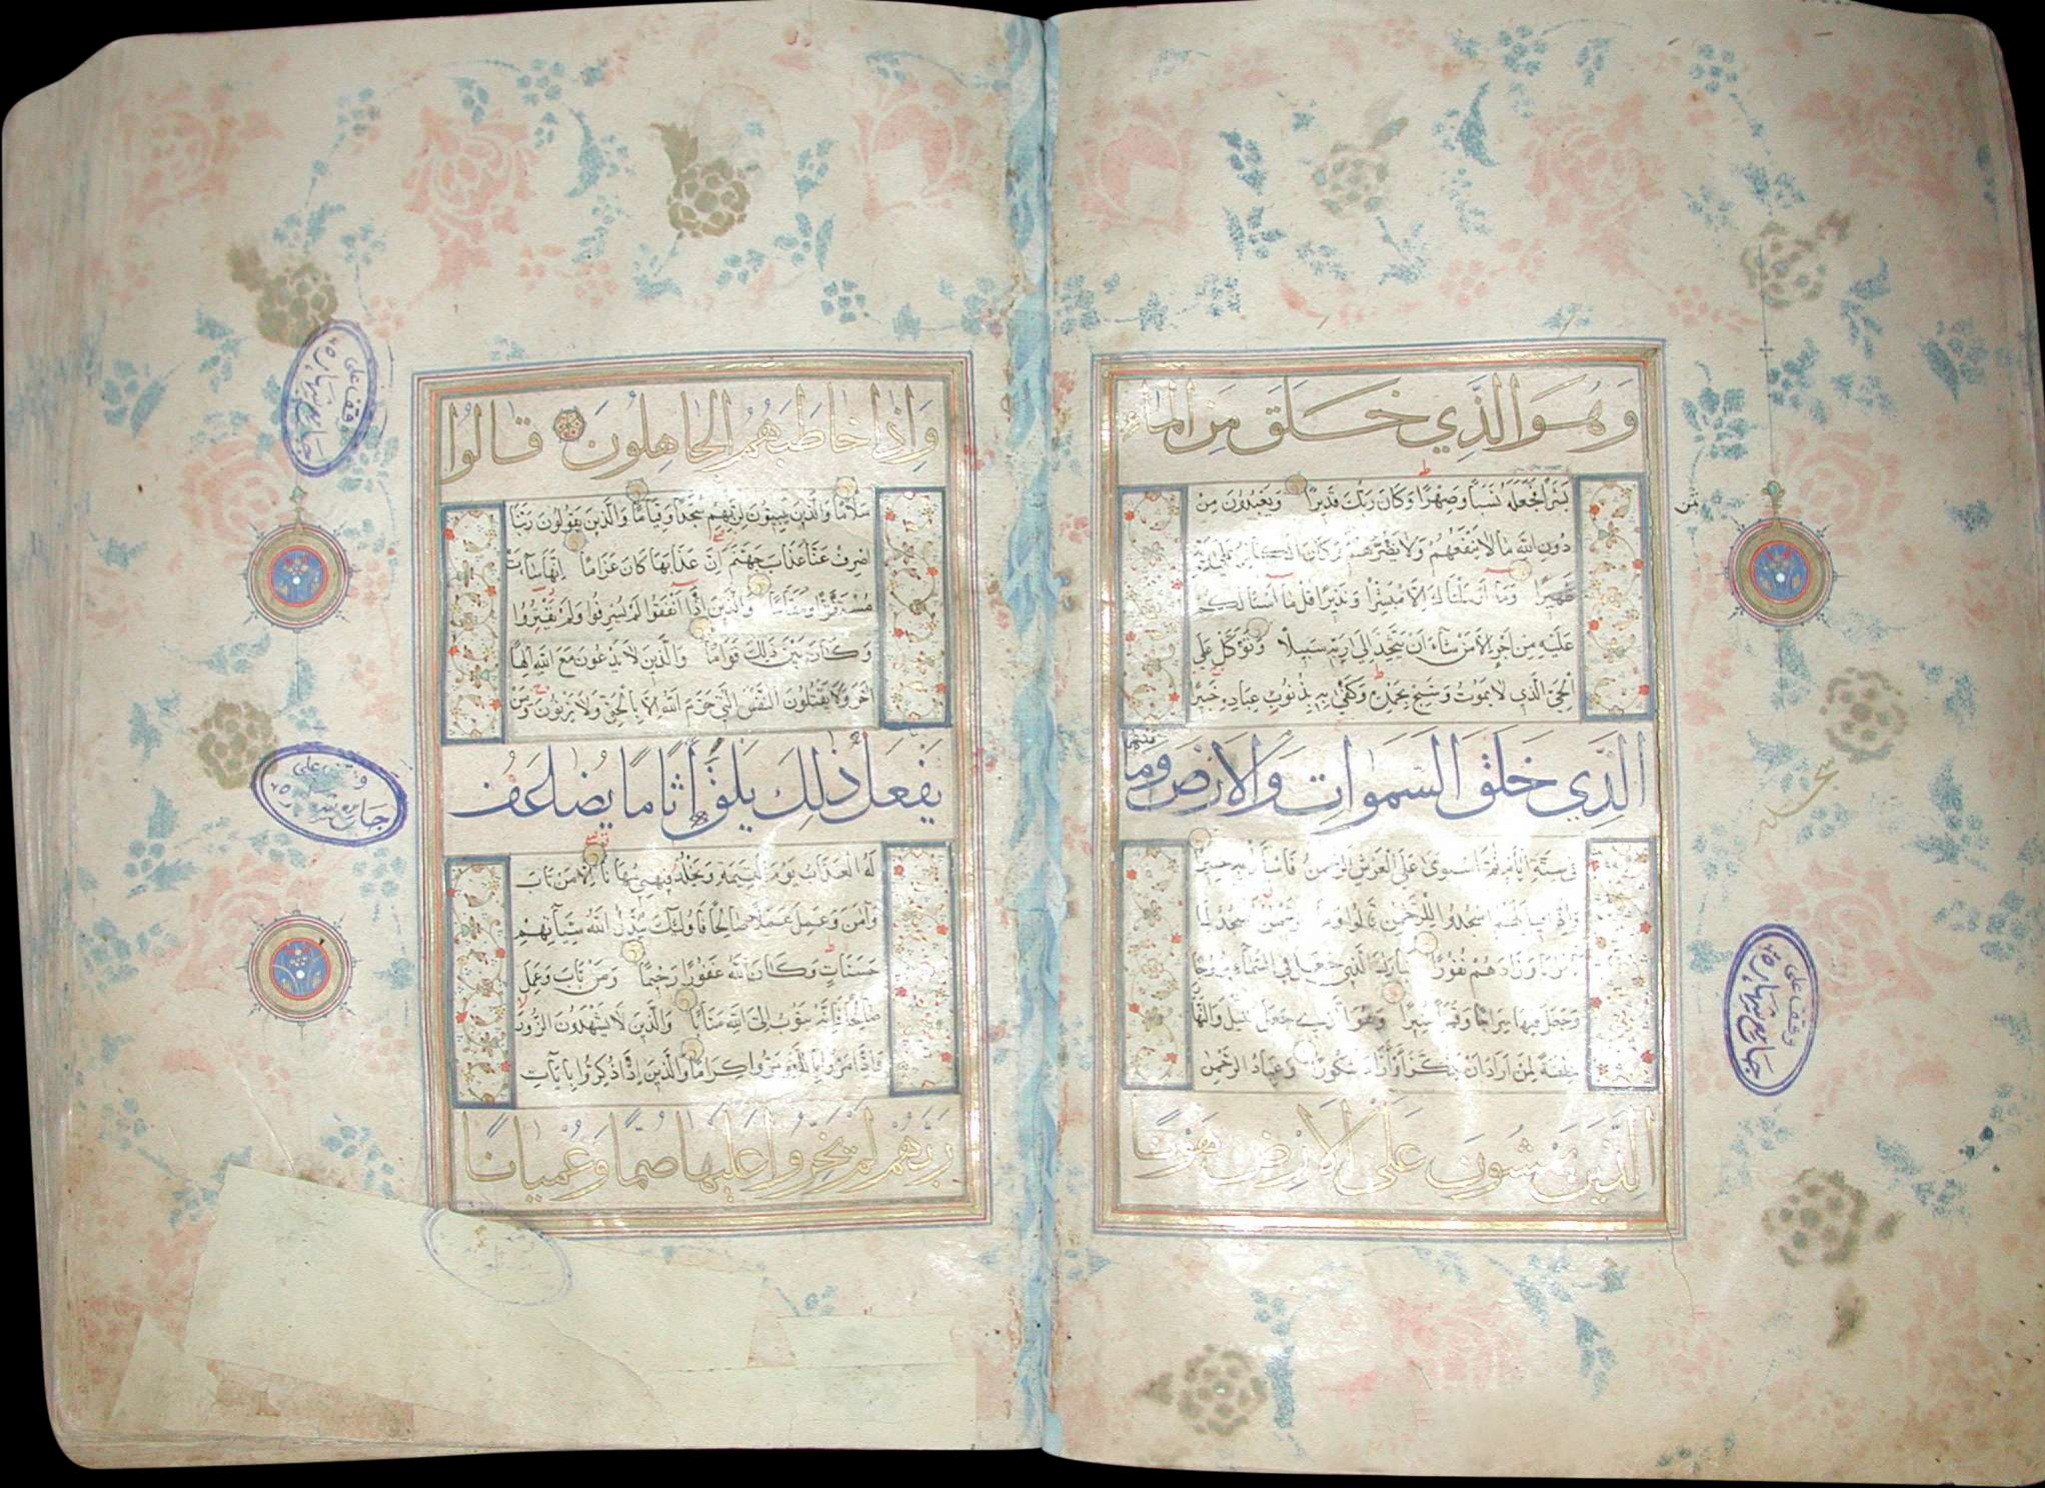 وَهُوَ الَّذِي خَلَقَ مِنَ الْمَاءِ
بَشَرًا فَجَعَلَهُ نَسَبًا وَصِهْرًا وَكَانَ رَبُّكَ قَدِيرًا وَيَعْبُدُونَ مِنْ
دُونِ اللَّهِ مَا لَا يَنْفَعُهُمْ وَلَا يَضُرُّهُمْ وَكَانَ الْكَافِرُ عَلَى رَبِّهِ
ظَهِيرًا وَمَا أَرْسَلْنَاكَ إِلَّا مُبَشِّرًا وَنَذِيرًا قُلْ مَا أَسْئَلُكُمْ
عَلَيْهِ مِنْ أَجْرٍ إِلَّا مَنْ شَاءَ أَنْ يَتَّخِذَ إِلَى رَبِّهِ سَبِيلًا وَتَوَكَّلْ عَلَى
الْحَيِّ الَّذِي لَا يَمُوتُ وَسَبِّحْ بِحَمْدِهِ وَكَفَى بِهِ بِذُنُوبِ عِبَادِهِ خَبِيرًا
الَّذِي خَلَقَ السَّمَوَاتِ وَالْأَرْضَ وَمَا بَيْنَهُمَا
فِي سِتَّةِ أَيَّامٍ ثُمَّ اسْتَوَى عَلَى الْعَرْشِ الرَّحْمَنُ فَاسْأَلْ بِهِ خَبِيرًا
وَإِذَا قِيلَ لَهُمُ اسْجُدُوا لِلرَّحْمَنِ قَالُوا وَمَا الرَّحْمَنُ أَنَسْجُدُ لِمَا
تَأْمُرُنَا وَزَادَهُمْ نُفُورًا تَبَارَكَ الَّذِي جَعَلَ فِي السَّمَاءِ بُرُوجًا
وَجَعَلَ فِيهَا سِرَاجًا وَقَمَرًا مُنِيرًا وَهُوَ الَّذِي جَعَلَ اللَّيْلَ وَالنَّهَارَ
خِلْفَةً لِمَنْ أَرَادَ أَنْ يَذَّكَّرَ أَوْ أَرَادَ شُكُورًا وَعِبَادُ الرَّحْمَنِ
الَّذِينَ يَمْشُونَ عَلَى الْأَرْضِ هَوْنًا
وقف على
وَإِذَا خَاطَبَهُمُ الْجَاهِلُونَ قَالُوا
سَلَامًا وَالَّذِينَ يَبِيتُونَ لِرَبِّهِمْ سُجَّدًا وَقِيَامًا وَالَّذِينَ يَقُولُونَ رَبَّنَا
اصْرِفْ عَنَّا عَذَابَ جَهَنَّمَ إِنَّ عَذَابَهَا كَانَ غَرَامًا إِنَّهَا سَاءَتْ
مُسْتَقَرًّا وَمُقَامًا وَالَّذِينَ إِذَا أَنْفَقُوا لَمْ يُسْرِفُوا وَلَمْ يَقْتُرُوا
وَكَانَ بَيْنَ ذَلِكَ قَوَامًا وَالَّذِينَ لَا يَدْعُونَ مَعَ اللَّهِ إِلَهًا
آخَرَ وَلَا يَقْتُلُونَ النَّفْسَ الَّتِي حَرَّمَ اللَّهُ إِلَّا بِالْحَقِّ وَلَا يَزْنُونَ وَمَنْ
يَفْعَلْ ذَلِكَ يَلْقَ أَثَامًا يُضَاعَفْ
لَهُ الْعَذَابُ يَوْمَ الْقِيَمَةِ وَيَخْلُدْ فِيهِ مُهَانًا إِلَّا مَنْ تَابَ
وَآمَنَ وَعَمِلَ عَمَلًا صَالِحًا فَأُولَئِكَ يُبَدِّلُ اللَّهُ سَيِّآتِهِمْ
حَسَنَاتٍ وَكَانَ اللَّهُ غَفُورًا رَحِيمًا وَمَنْ تَابَ وَعَمِلَ
صَالِحًا فَإِنَّهُ يَتُوبُ إِلَى اللَّهِ مَتَابًا وَالَّذِينَ لَا يَشْهَدُونَ الزُّورَ
وَإِذَا مَرُّوا بِاللَّغْوِ مَرُّوا كِرَامًا وَالَّذِينَ إِذَا ذُكِّرُوا بِآيَاتِ
رَبِّهِمْ لَمْ يَخِرُّوا عَلَيْهَا صُمًّا وَعُمْيَانًا
وقف على
وقف على